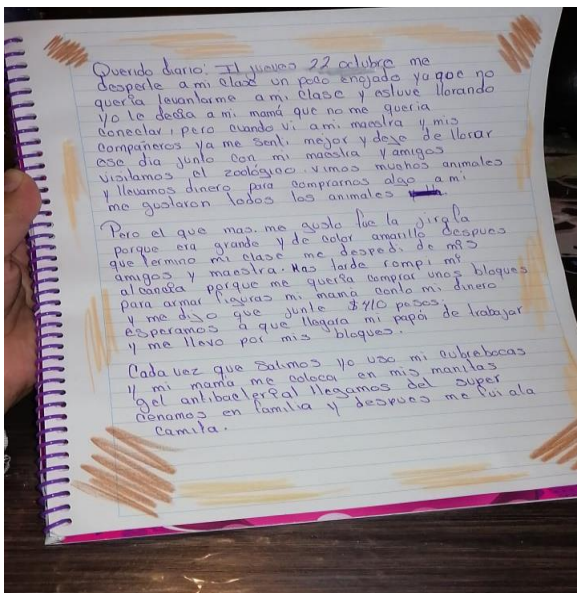 Querido diario: El jueves 22 octubre me
desperte a mi clase un poco enojado ya que no
quería levantarme a mi clase y estuve llorando
yo le decia a mi mamá que no me queria
conectar, pero cuando vi a mi maestra y mis
compañeros ya me sentí mejor y deje de llorar
ese dia junto con mi maestra y amigos
visitamos el zoológico. vimos muchos animales
y llevamos dinero para comprarnos algo a mi
me gustaron todos los animales
Pero el que mas. me gusto fue la jirafa
porque era grande y de color amarillo despues
que termino mi clase me despedi de mis
amigos y maestra. Mas tarde rompi mi
alcancía porque me quería comprar unos bloques
para armar figuras mi mamá conto mi dinero
y me dijo que junte $410 pesos;
esperamos a que llegara mi papá de trabajar
y me llevo por mis bloques.
Cada vez que salimos yo uso mi cubrebocas
y mi mamá me coloca en mis manitas
gel antibacterial llegamos del super
cenamos en familia y despues me fui ala
camita.